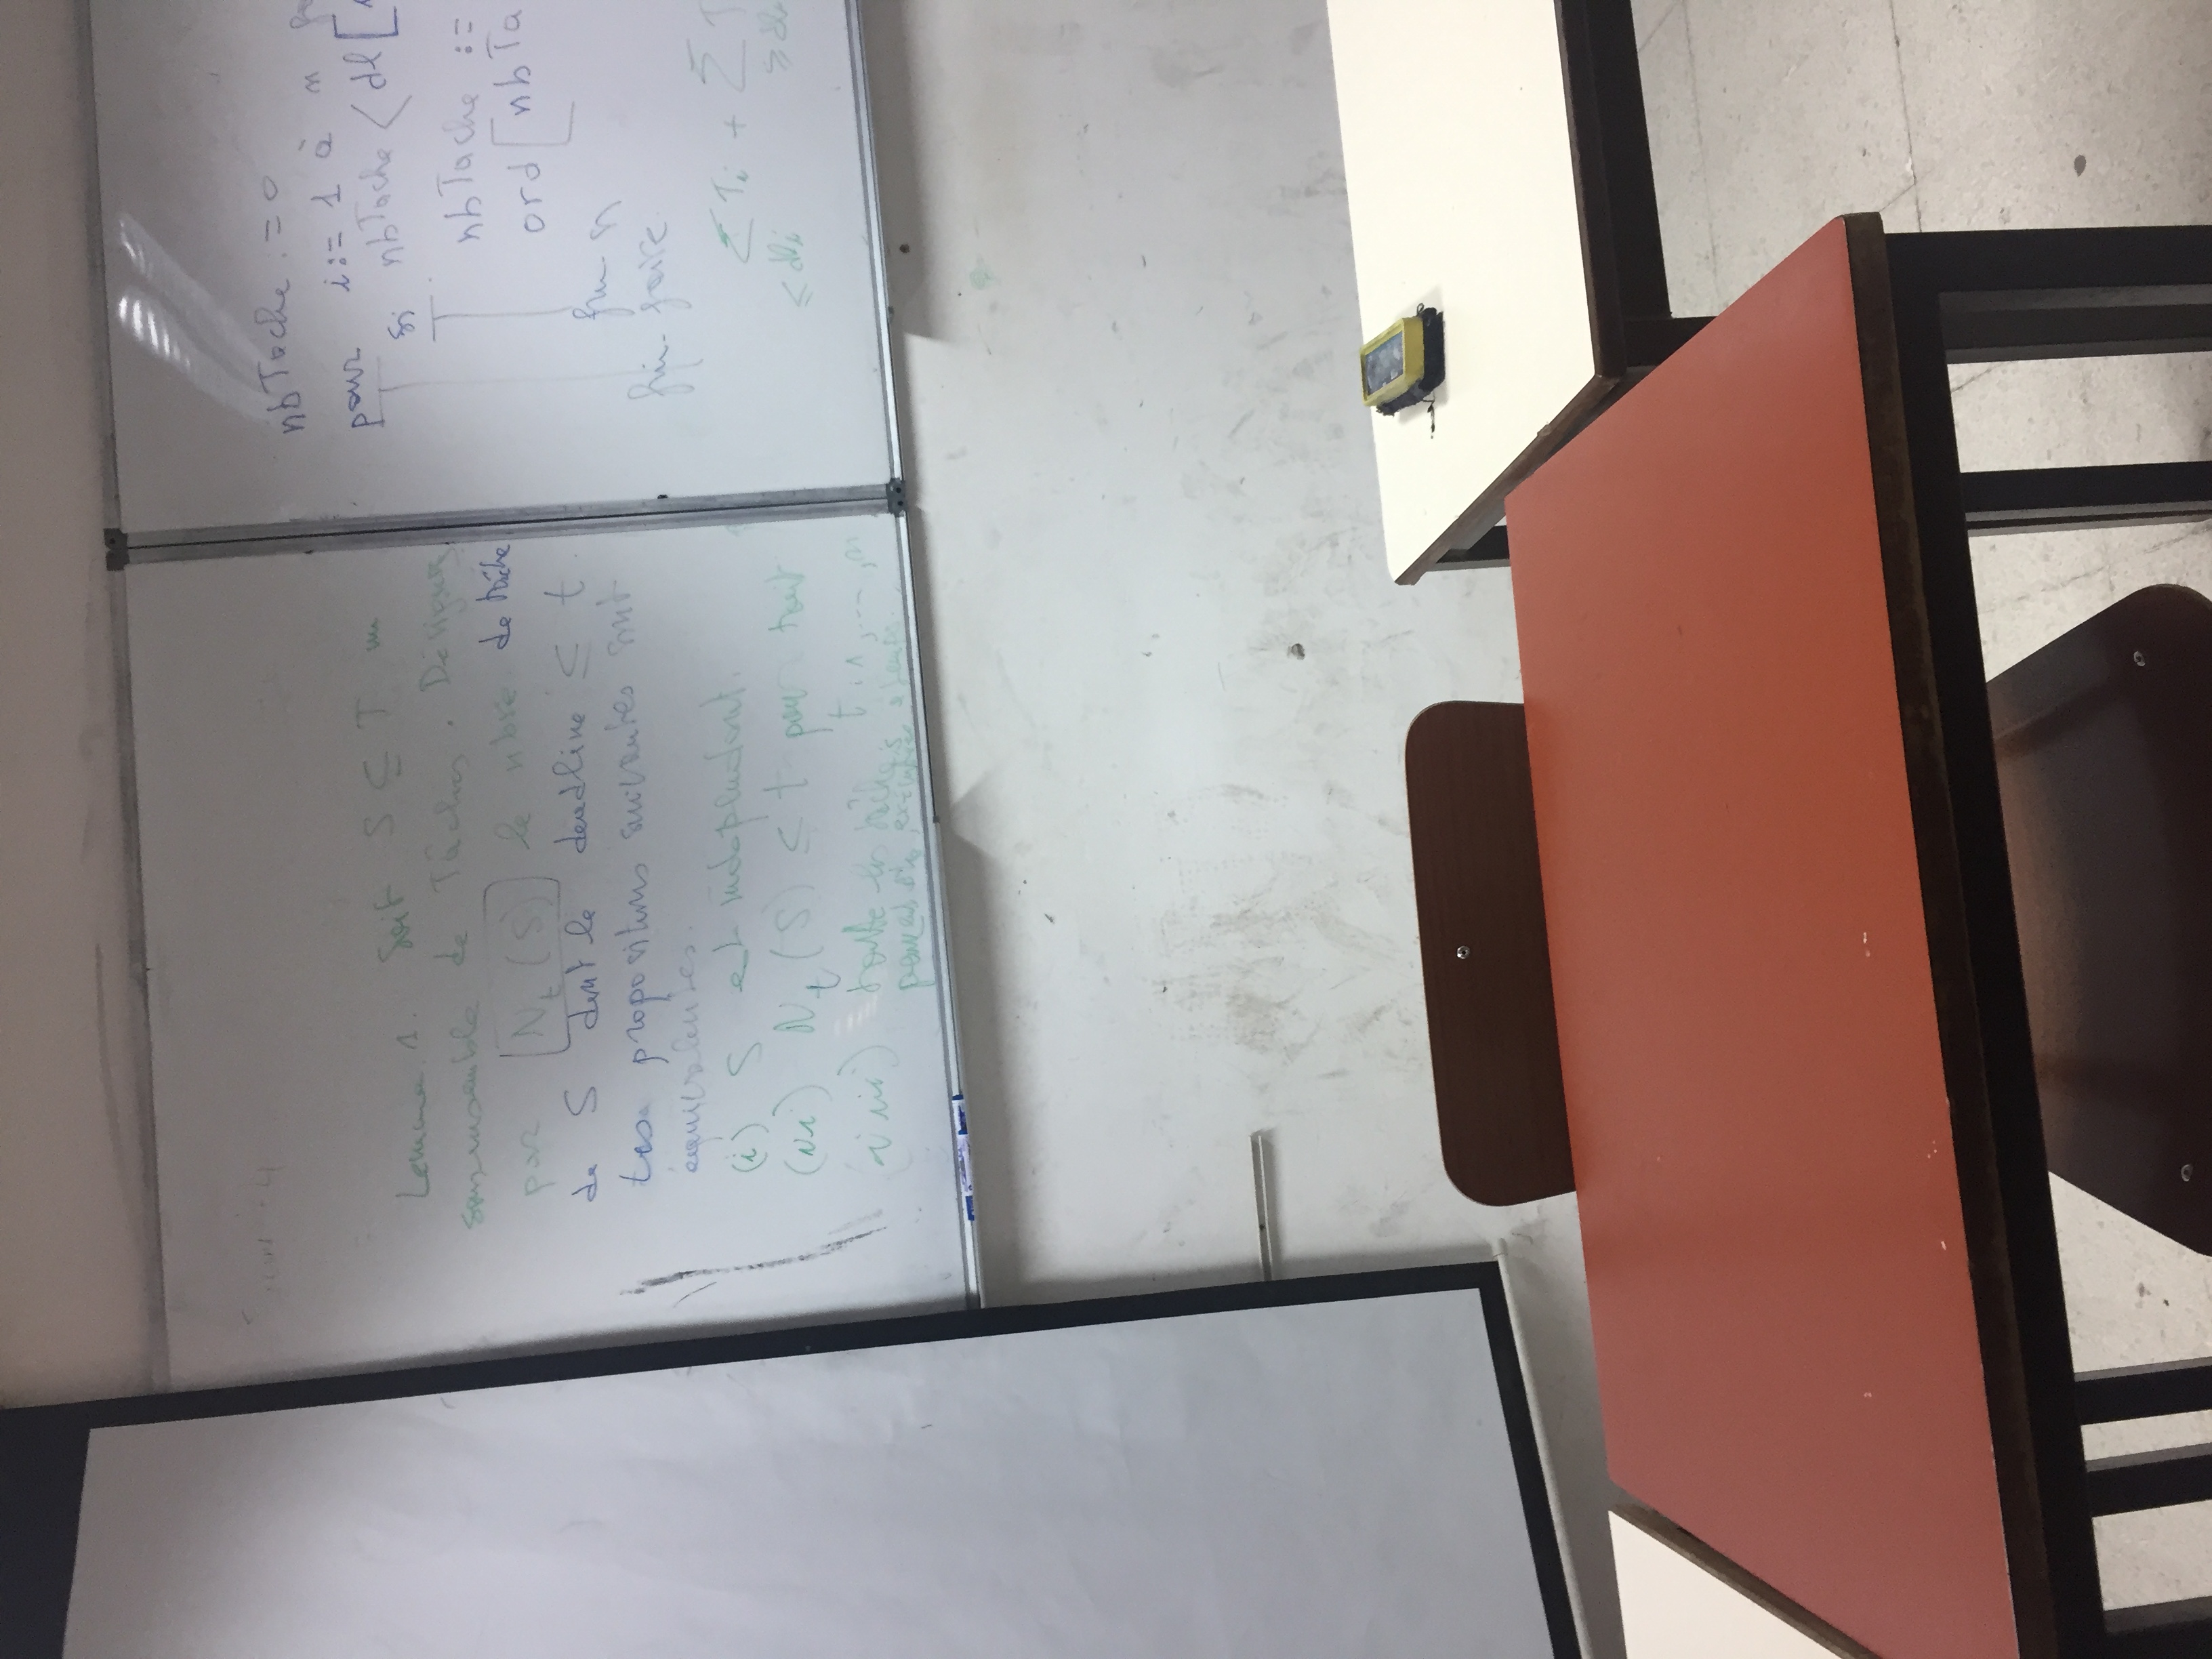 Lemme 1. Soit S ⊆ T un
sous ensemble de Tâches. Désignons
par N_t(S) le nbre de tâche
de S dont le deadline ≤ t.
Les propositions suivantes sont
équivalentes.
(i) S est indépendant.
(ii) N_t(S) ≤ t pour tout
t = 1, ..., n
iii) toute les tâches
peuvent être exécutées à temps.
nbTache := 0
pour i := 1 à n
si nbTache < dl[
nbTache :=
ord[nbTa
fin si
fin faire
∑ Ti + ∑ T
≤ dli ≥ dl